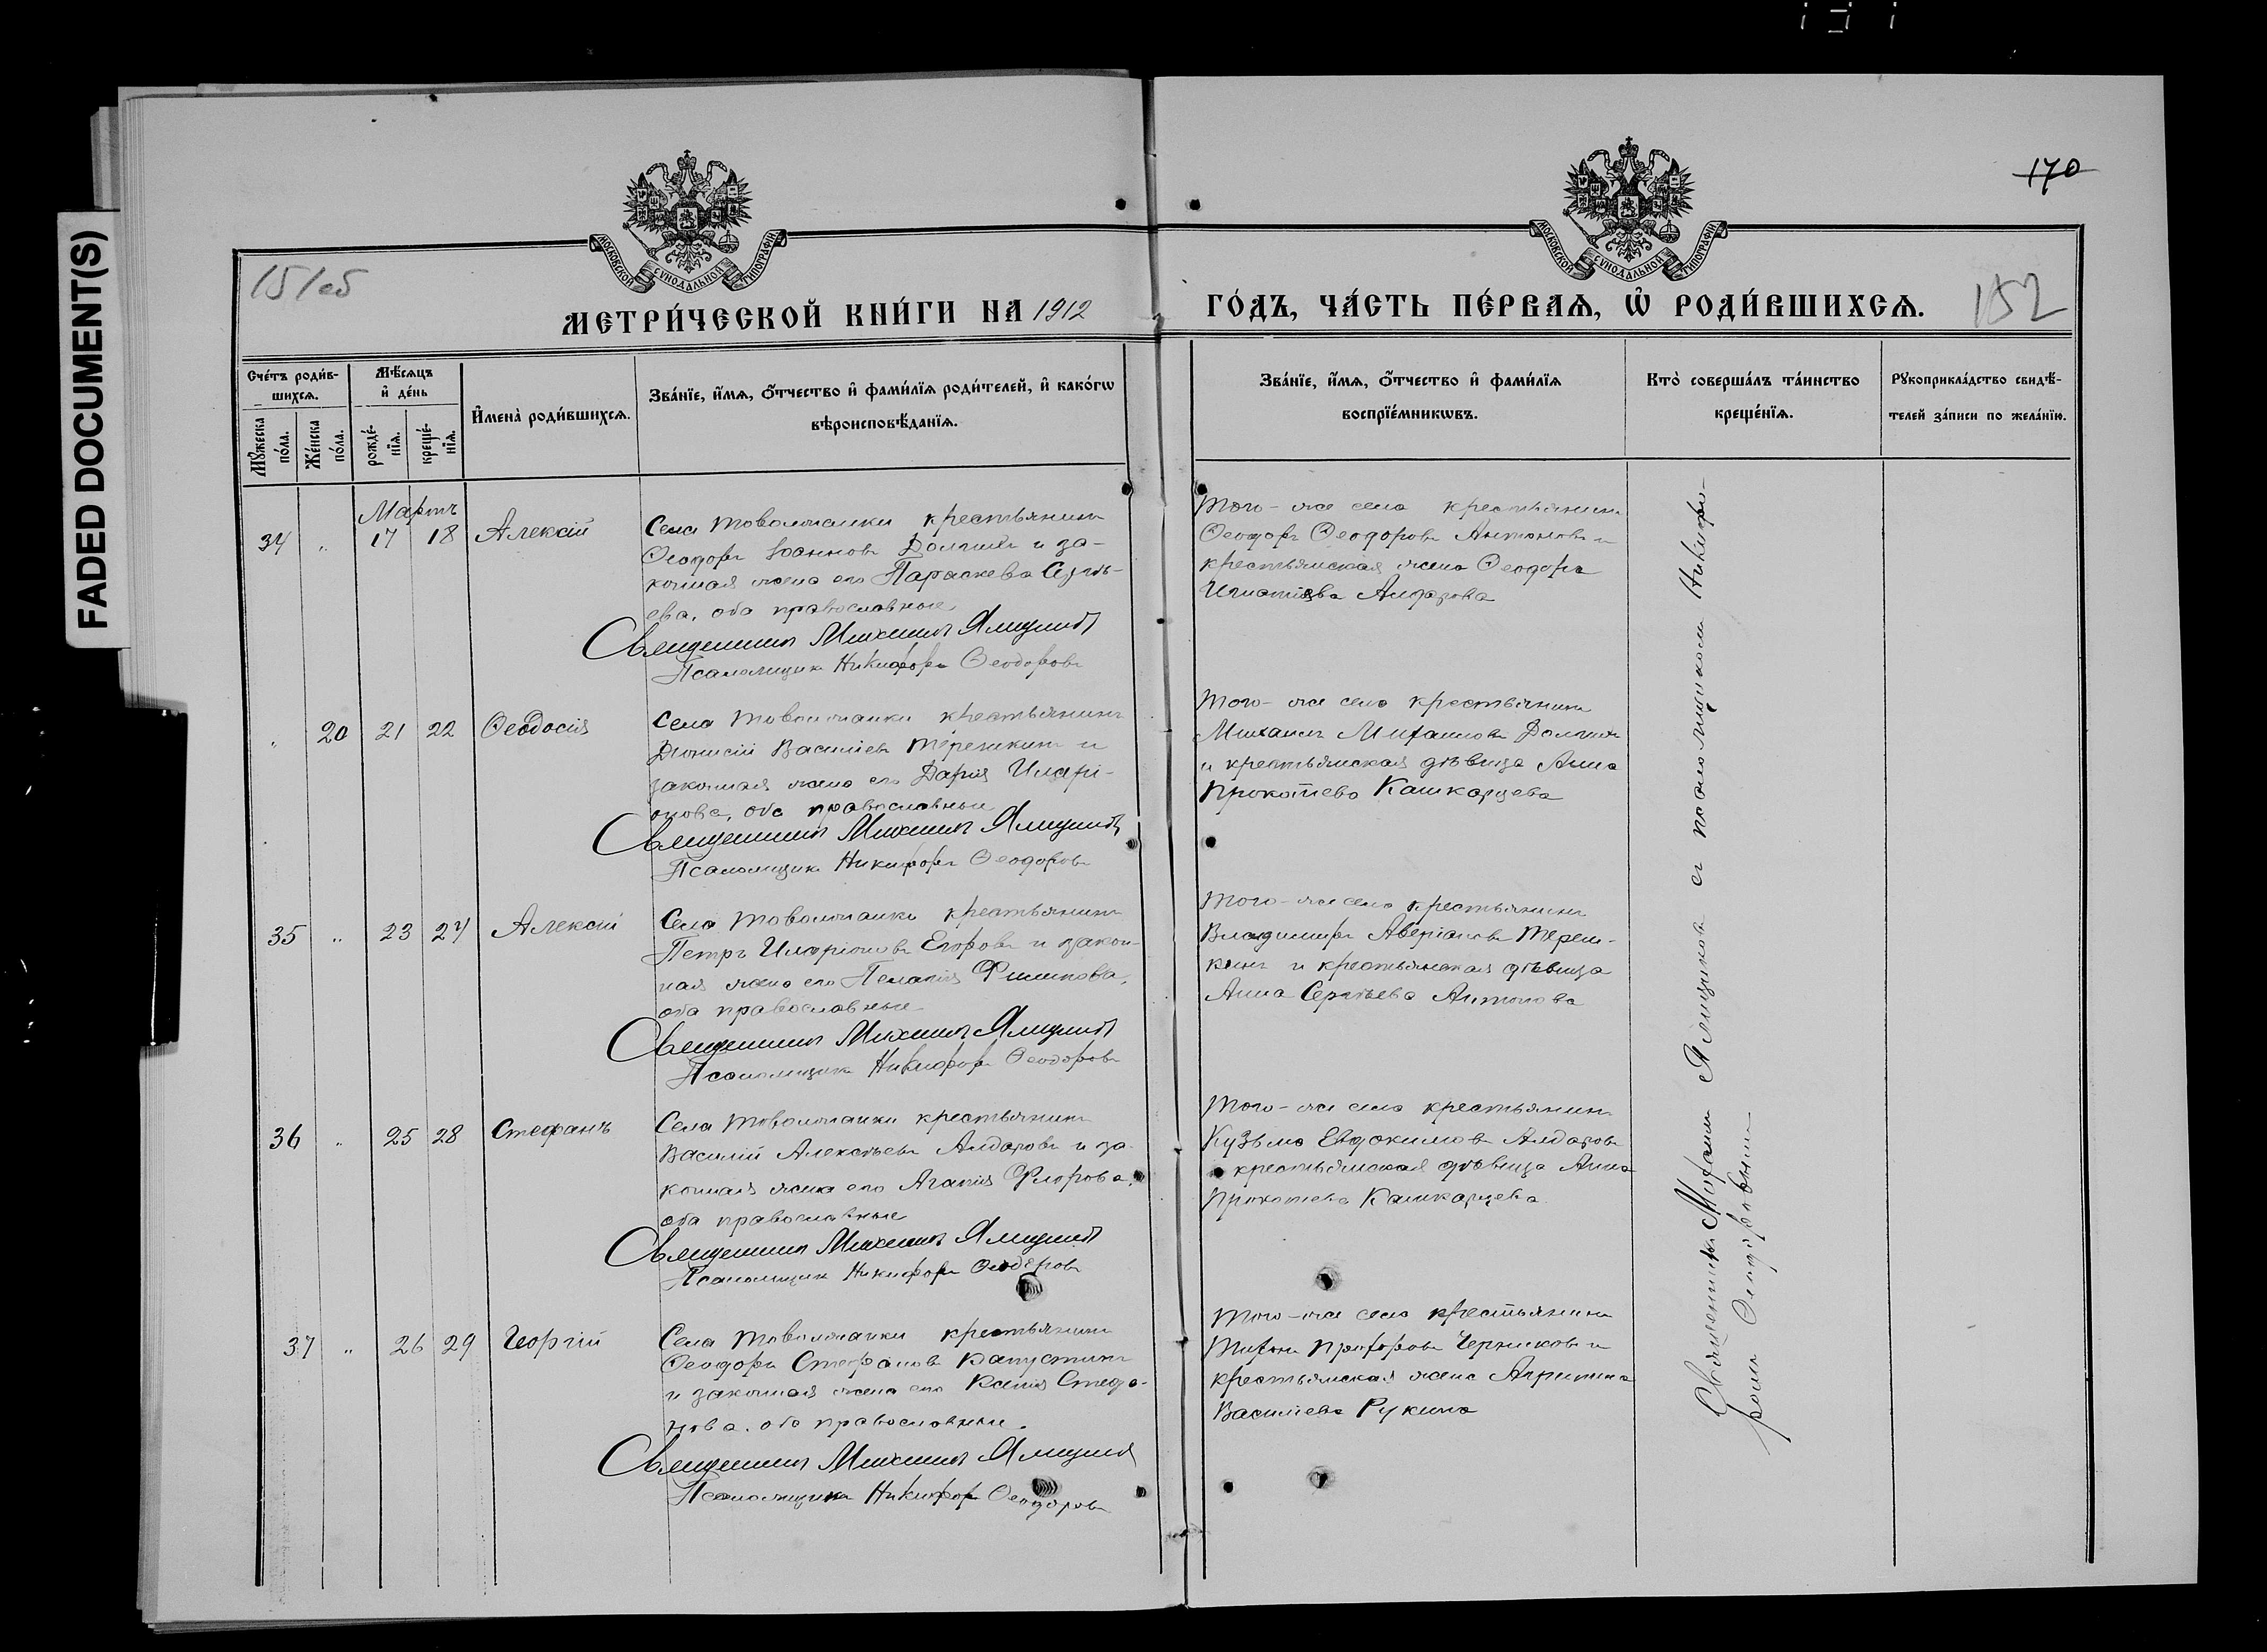 FADED DOCUMENT(S)
170
151об
152
МОСКОВСКОЙ СѴНОДАЛЬНОЙ ТИПОГРАФІИ
МОСКОВСКОЙ СѴНОДАЛЬНОЙ ТИПОГРАФІИ
МЕТРИ́ЧЕСКОЙ КНИ́ГИ НА 1912
ГО́ДЪ, ЧА́СТЬ ПЕ́РВАѦ, Ѡ҆ РОДИ́ВШИХСѦ.
Сче́тъ роди́в-
шихсѧ.
Мꙋ́жеска
по́ла.
Же́нска
по́ла.
Мѣ́сѧцъ
и҆ де́нь
рожде́-
нїѧ.
креще́-
нїѧ.
И҆мена̀ роди́вшихсѧ.
Зва́нїе, и҆́мѧ, ѻ҆́тчество и҆ фами́лїѧ роди́телей, и҆ како́гѡ
вѣроисповѣ́данїѧ.
Зва́нїе, и҆́мѧ, ѻ҆́тчество и҆ фами́лїѧ
воспрїе́мникѡвъ.
Кто̀ соверша́лъ та́инство
креще́нїѧ.
Рꙋкоприкла́дство свидѣ́-
телей за́писи по жела́нїю.
Мартъ
34 " 17 18 Алексій
Села Товолжанки крестьянинъ
Ѳеодоръ Іоанновъ Долгихъ и за-
конная жена его Параскева Сергѣ-
ева, оба православные
Священникъ Михаилъ Ямщиковъ
Псаломщикъ Никифоръ Ѳеодоровъ
Того-же села крестьянинъ
Ѳеодоръ Ѳеодоровъ Антоновъ и
крестьянская жена Ѳеодора
Игнатіева Алдарова
" 20 21 22 Ѳеодосія
Села Товолжанки крестьянинъ
Діонисій Васильевъ Терешкинъ и
законная жена его Дарія Иларі-
онова, оба православные
Священникъ Михаилъ Ямщиковъ
Псаломщикъ Никифоръ Ѳеодоровъ
Того-же села крестьянинъ
Михаилъ Михаиловъ Долгихъ
и крестьянская дѣвица Анна
Прокопіева Кашкарцева
35 " 23 24 Алексій
Села Товолжанки крестьянинъ
Петръ Иларіоновъ Егоровъ и закон-
ная жена его Пелагія Филипова,
оба православные
Священникъ Михаилъ Ямщиковъ
Псаломщикъ Никифоръ Ѳеодоровъ
Того-же села крестьянинъ
Владимиръ Аверіановъ Тереш-
кинъ и крестьянская дѣвица
Анна Сергѣева Антонова
36 " 25 28 Стефанъ
Села Товолжанки крестьянинъ
Василій Алексѣевъ Алдаровъ и за-
конная жена его Агапія Флорова,
оба православные
Священникъ Михаилъ Ямщиковъ
Псаломщикъ Никифоръ Ѳеодоровъ
Того-же села крестьянинъ
Кузьма Евдокимовъ Алдаровъ
крестьянская дѣвица Анна
Прокопіева Кашкарцева
37 " 26 29 Георгій
Села Товолжанки крестьянинъ
Ѳеодоръ Стефановъ Капустинъ
и законная жена его Ксенія Стефа-
нова, оба православные.
Священникъ Михаилъ Ямщиковъ
Псаломщикъ Никифоръ Ѳеодоровъ
Того-же села крестьянинъ
Тихонъ Прохоровъ Черниковъ и
крестьянская жена Агрипина
Васильева Рукина
Священникъ Михаилъ Ямщиковъ съ псаломщикомъ Никифо-
ромъ Ѳеодоровымъ